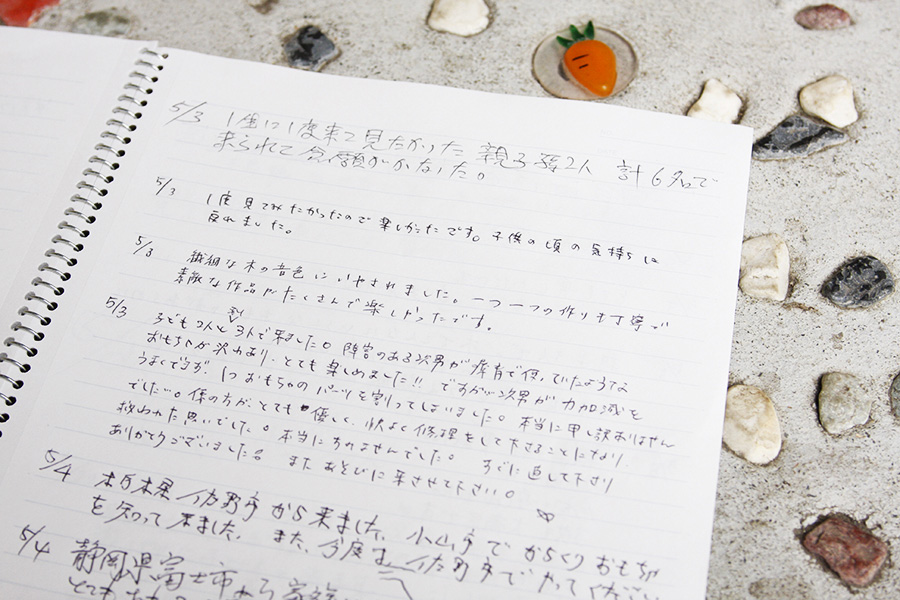 5/3 1度に1度来て見たかった 親子孫2人 計6名で
来られて念願がかないました。
5/3 1度見てみたかったので楽しかったです。子供の頃の気持ちに
戻れました。
5/3 繊細な木の音色にいやされました。一つ一つの作りも丁寧で
素敵な作品がたくさんで楽しかったです。
5/3 子ども2人と 3人で来ました。障害のある次男が療育で使っていたような
おもちゃが沢山あり、とても楽しめました!! ですが次男が力加減を
うまくできず、1つおもちゃのパーツを割ってしまいました。本当に申し訳ありません
でした。係の方が、とても優しく、快よく修理をして下さることになり、
救われた思いでした。本当にすみませんでした。すぐに直して下さり
ありがとうございました。またあそびに来させて下さい。
5/4 栃木県佐野市から来ました。小山市でからくりおもちゃ
を知って来ました。また、今度は佐野市でやってください
5/4 静岡県富士市から家族
とても